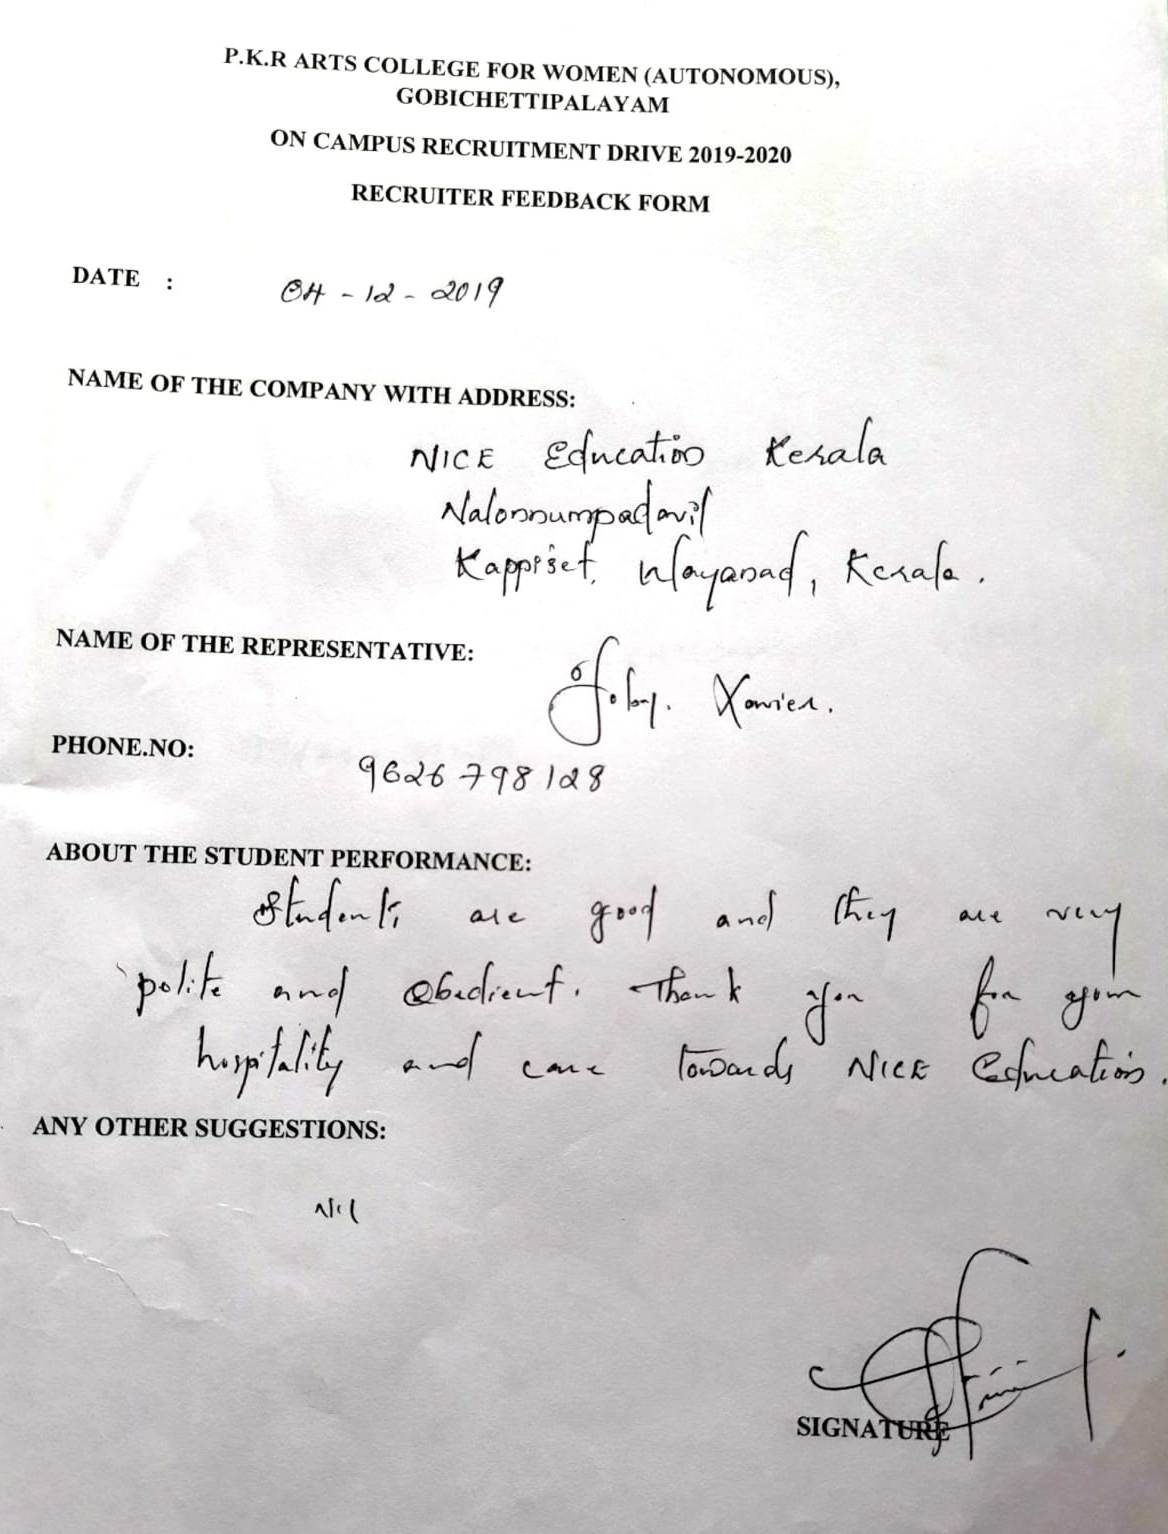 P.K.R ARTS COLLEGE FOR WOMEN (AUTONOMOUS),
GOBICHETTIPALAYAM
ON CAMPUS RECRUITMENT DRIVE 2019-2020
RECRUITER FEEDBACK FORM
DATE : 04-12-2019
NAME OF THE COMPANY WITH ADDRESS:
NICE Education Kerala
Nalonnumpadavil
Kappiset, Wayanad, Kerala.
NAME OF THE REPRESENTATIVE: Joby. Xavier.
PHONE.NO: 9626798128
ABOUT THE STUDENT PERFORMANCE:
Students are good and they are very
polite and Obedient. Thank you for your
hospitality and care towards NICE Education.
ANY OTHER SUGGESTIONS:
Nil
SIGNATURE